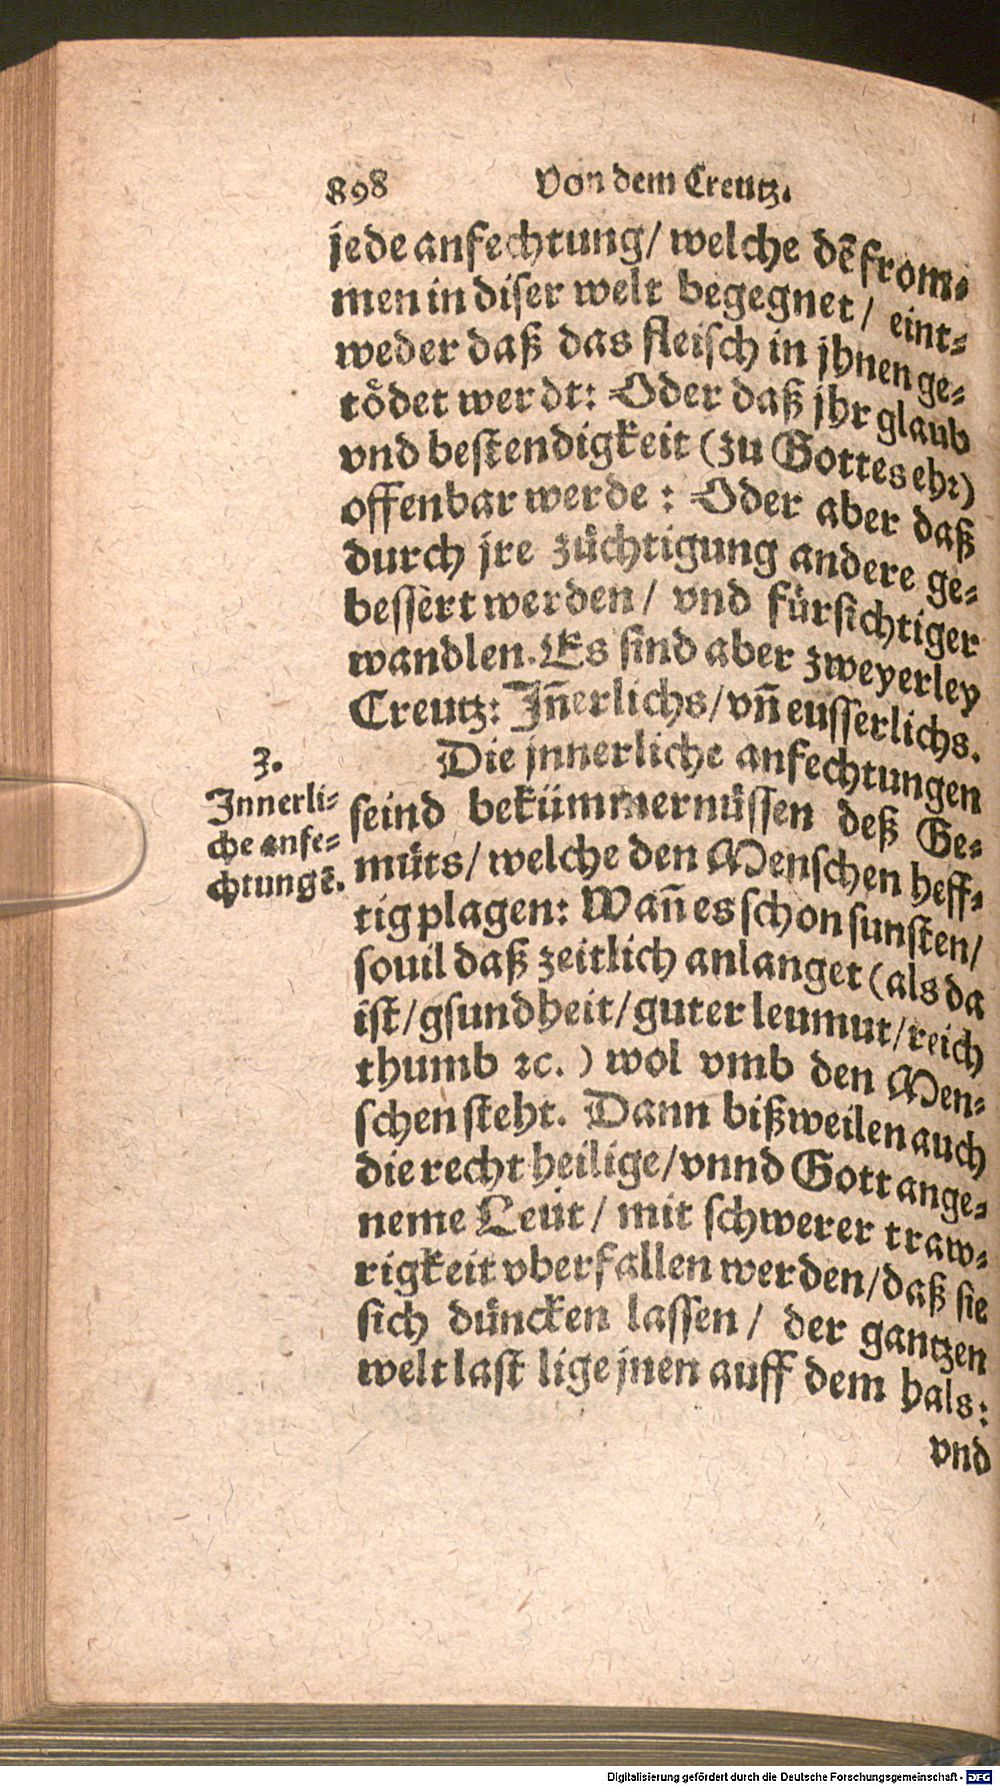 898 Von dem Creutz.
jede anfechtung/ welche dẽ from⸗
men in diser welt begegnet/ eint⸗
weder daß das fleisch in jhnen ge⸗
tödet werdt: Oder daß jhr glaub
vnd bestendigkeit (zu Gottes ehr)
offenbar werde : Oder aber daß
durch jre züchtigung andere ge⸗
bessert werden/ vnd fürsichtiger
wandlen. Es sind aber zweyerley
Creutz: Jñerlichs/ vñ eusserlichs.
3.
Jnnerli⸗
che anfe⸗
chtungẽ.
Die jnnerliche anfechtungen
seind bekümmernüssen deß Ge⸗
müts/ welche den Menschen heff⸗
tig plagen: Wañ es schon sunsten/
souil daß zeitlich anlanget (als da
ist/ gsundheit/ guter leumut/ reich
thumb ꝛc. ) wol vmb den Men⸗
schen steht. Dann bißweilen auch
die recht heilige/ vnnd Gott ange⸗
neme Leüt/ mit schwerer traw⸗
rigkeit vberfallen werden/ daß sie
sich düncken lassen/ der gantzen
welt last lige jnen auff dem hals:
vnd
Digitalisierung gefördert durch die Deutsche Forschungsgemeinschaft - DFG